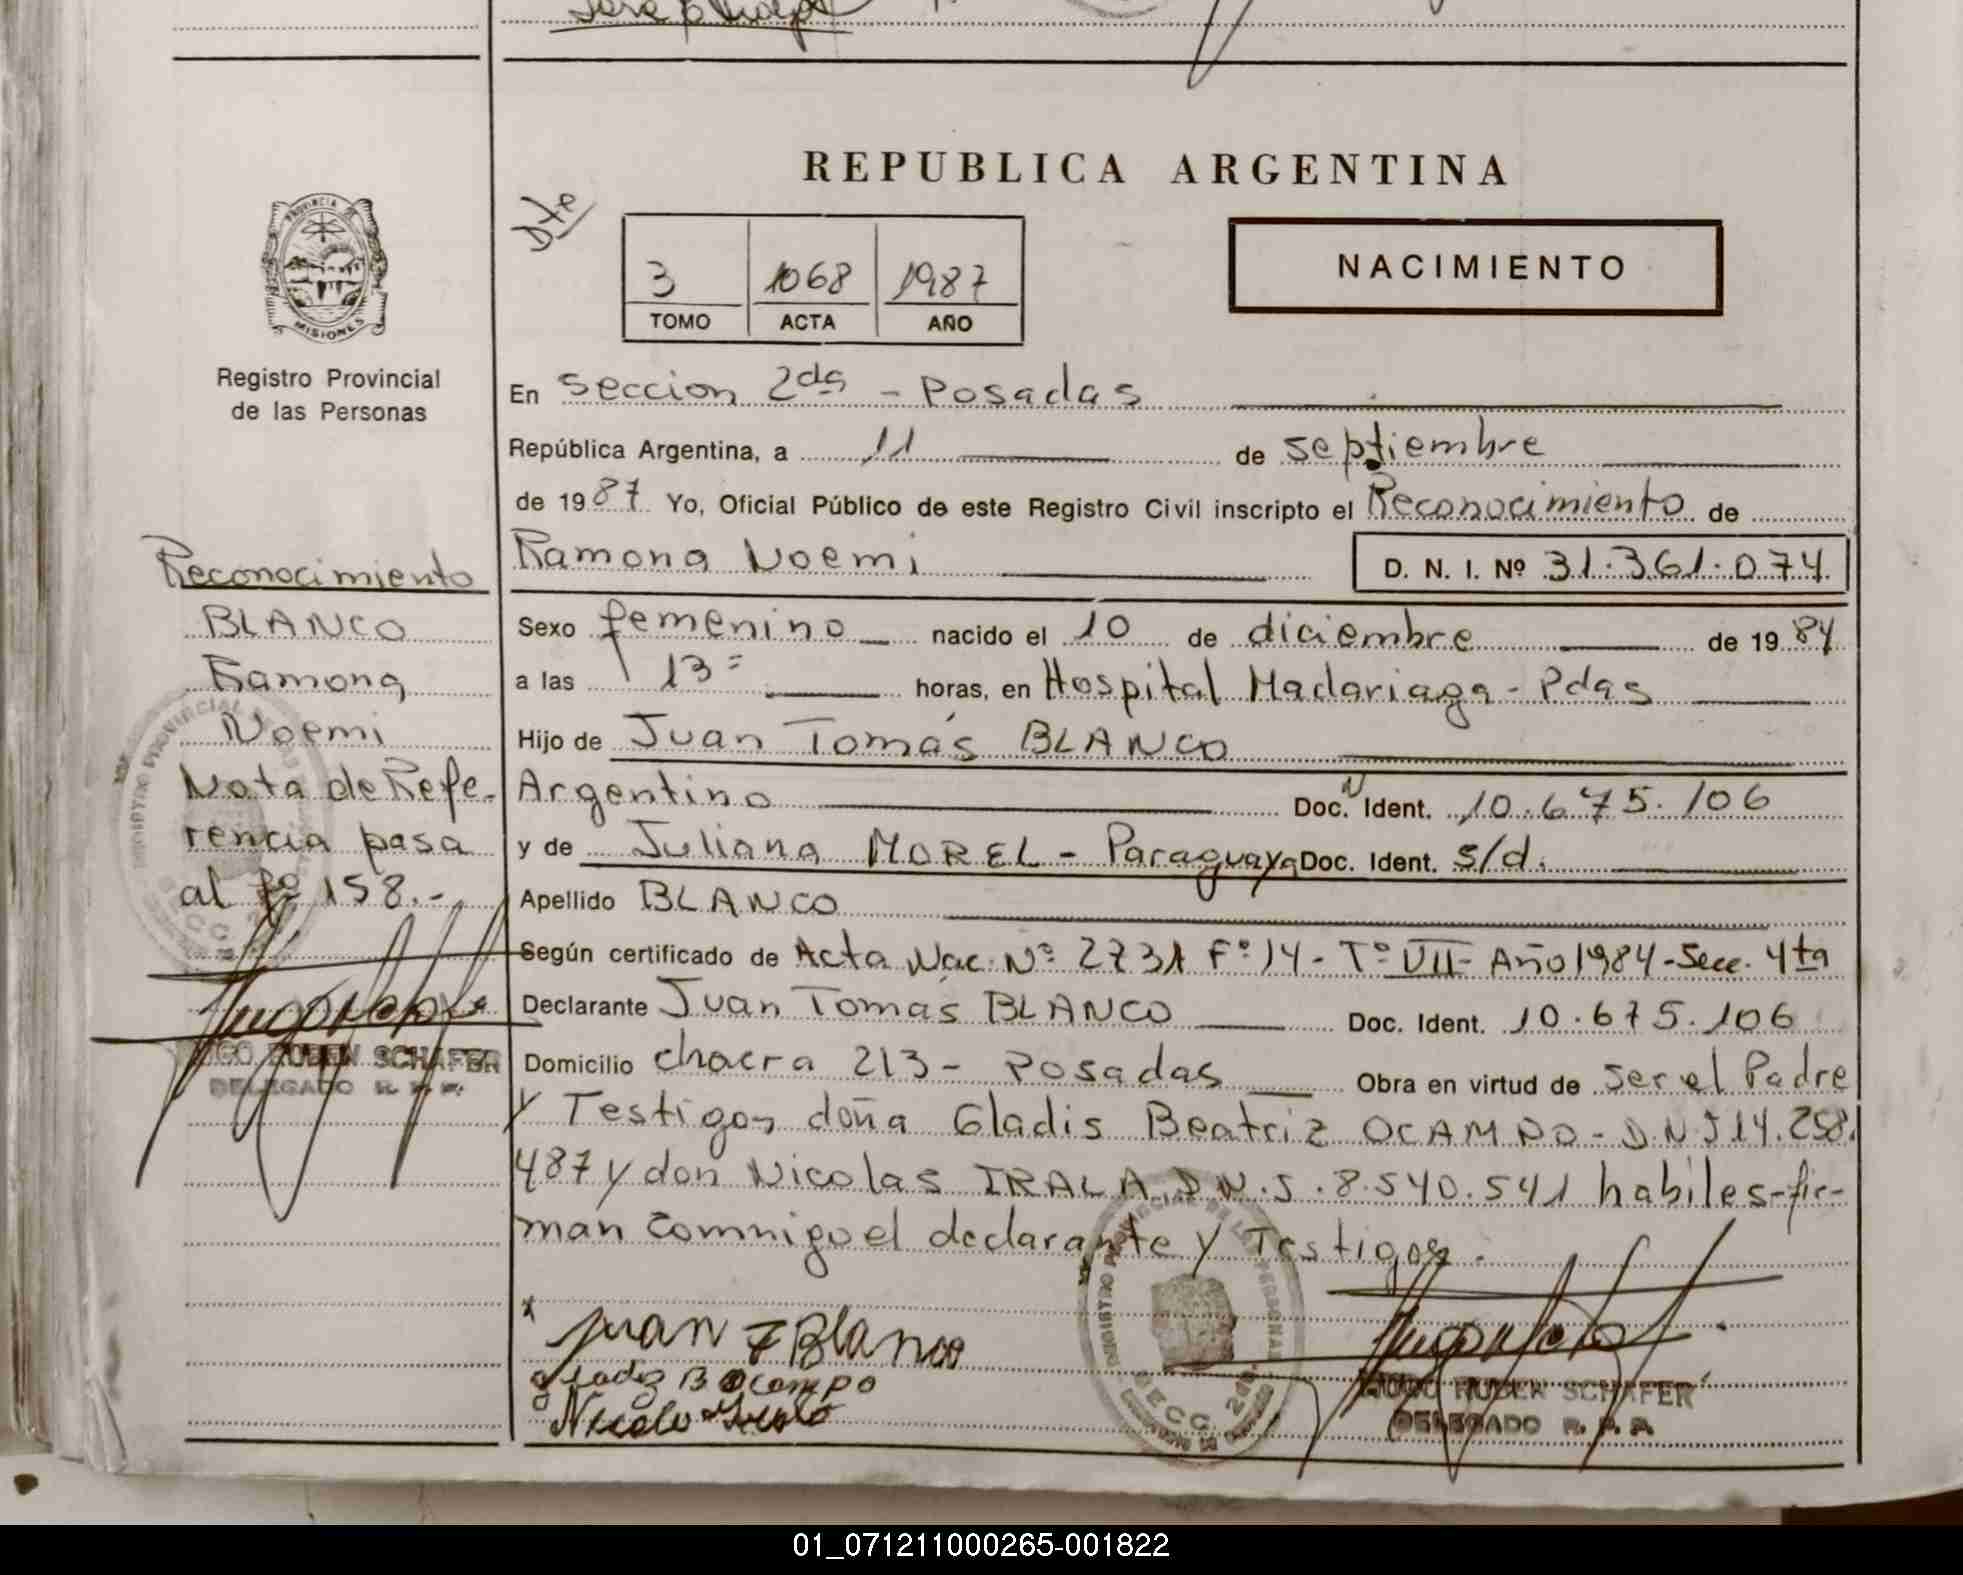 REPUBLICA ARGENTINA
Dte
3 1068 1987
TOMO ACTA AÑO
NACIMIENTO
PROVINCIA DE
MISIONES
Registro Provincial
de las Personas
Reconocimiento
BLANCO
Ramona
Noemi
Nota de Refe-
rencia pasa
al fº 158.-
HUGO RUBEN SCHAFER
DELEGADO R. P. P.
En Seccion 2da - Posadas
República Argentina, a 11 de septiembre
de 1987. Yo, Oficial Público de este Registro Civil inscripto el Reconocimiento de
Ramona Noemi D. N. I. Nº 31.361.074
Sexo femenino nacido el 10 de diciembre de 1984
a las 13 = horas, en Hospital Madariaga - Pdas
Hijo de Juan Tomás BLANCO
Argentino Doc. Ident. 10.675.106
y de Juliana MOREL - Paraguaya Doc. Ident. s/d.
Apellido BLANCO
Según certificado de Acta Nac. Nº 2731 Fº 14 - Tº VII - Año 1984 - Secc. 4ta
Declarante Juan Tomás BLANCO Doc. Ident. 10.675.106
Domicilio chacra 213 - Posadas Obra en virtud de ser el Padre
y Testigos doña Gladis Beatriz OCAMPO - D.N.I 14.258.
487 y don Nicolas IRALA D.N.I. 8.540.541 habiles - fir-
man conmigo el declarante y Testigos.
Juan T Blanco
Gladis B Ocampo
HUGO RUBEN SCHAFER
DELEGADO R. P. P.
01_071211000265-001822